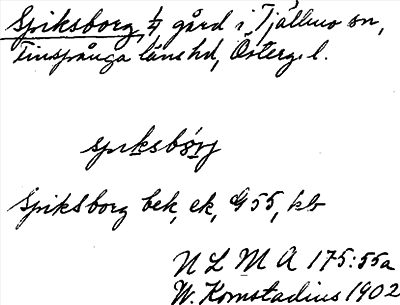 Spiksborg, ¼ gård i Tjällmo sn,
Finspånga länshd, Österg. l.
spıksbórj
Spiksborg bek, ek, G 55, kb
N L M A 175:55a
W. Komstadius 1902